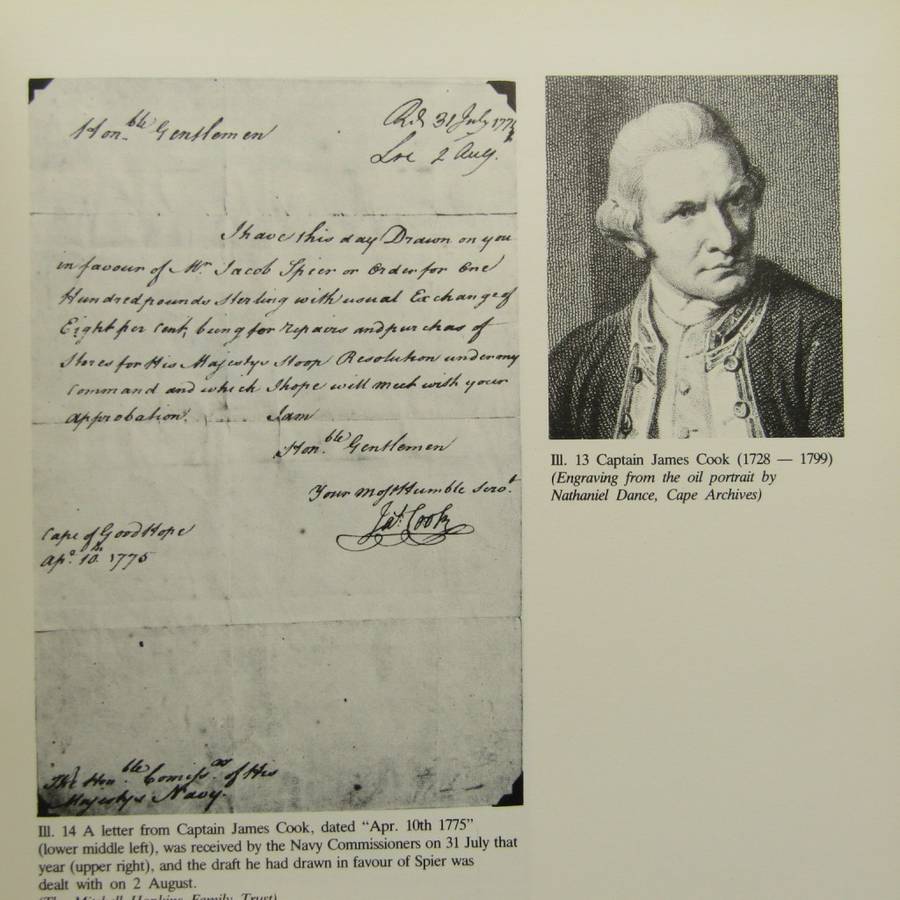 Hon.ble Gentlemen
Rd 31 July 1775
2 Aug.
I have this day Drawn on you
in favour of Mr Jacob Spier or Order for One
Hundred pounds Sterling with usual Exchange of
Eight per Cent, being for repairs and purchas of
Stores for His Majestys Sloop Resolution under my
Command and which I hope will meet with your
approbation. I am
Hon.ble Gentlemen
Your most Humble Servt.
Jas. Cook
Cape of Good Hope
Apl. 10th 1775
The Hon.ble Comissrs of His
Majestys Navy.
Ill. 13 Captain James Cook (1728 — 1799)
(Engraving from the oil portrait by
Nathaniel Dance, Cape Archives)
Ill. 14 A letter from Captain James Cook, dated “Apr. 10th 1775”
(lower middle left), was received by the Navy Commissioners on 31 July that
year (upper right), and the draft he had drawn in favour of Spier was
dealt with on 2 August.
(The Mitchell Hopkins Family Trust)